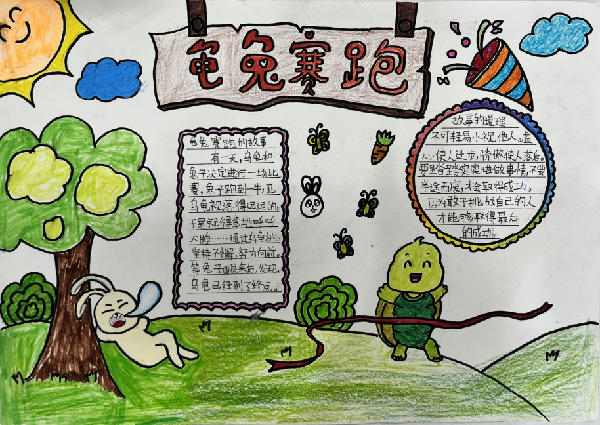 龟兔赛跑
龟兔赛跑的故事
有一天,乌龟和
兔子决定进行一场比
赛,兔子跑到一半,见
乌龟被落得远远的,
坚持不懈,努力向前,
等兔子醒来,发现
乌龟已经到了终点。
故事的道理
不可轻易小视他人。虚
心使人进步,骄傲使人落后。
要踏踏实实地做事情,不要
半途而废,才会取得成功。
因为敢于挑战自己的人
才能够取得最后
的成功。